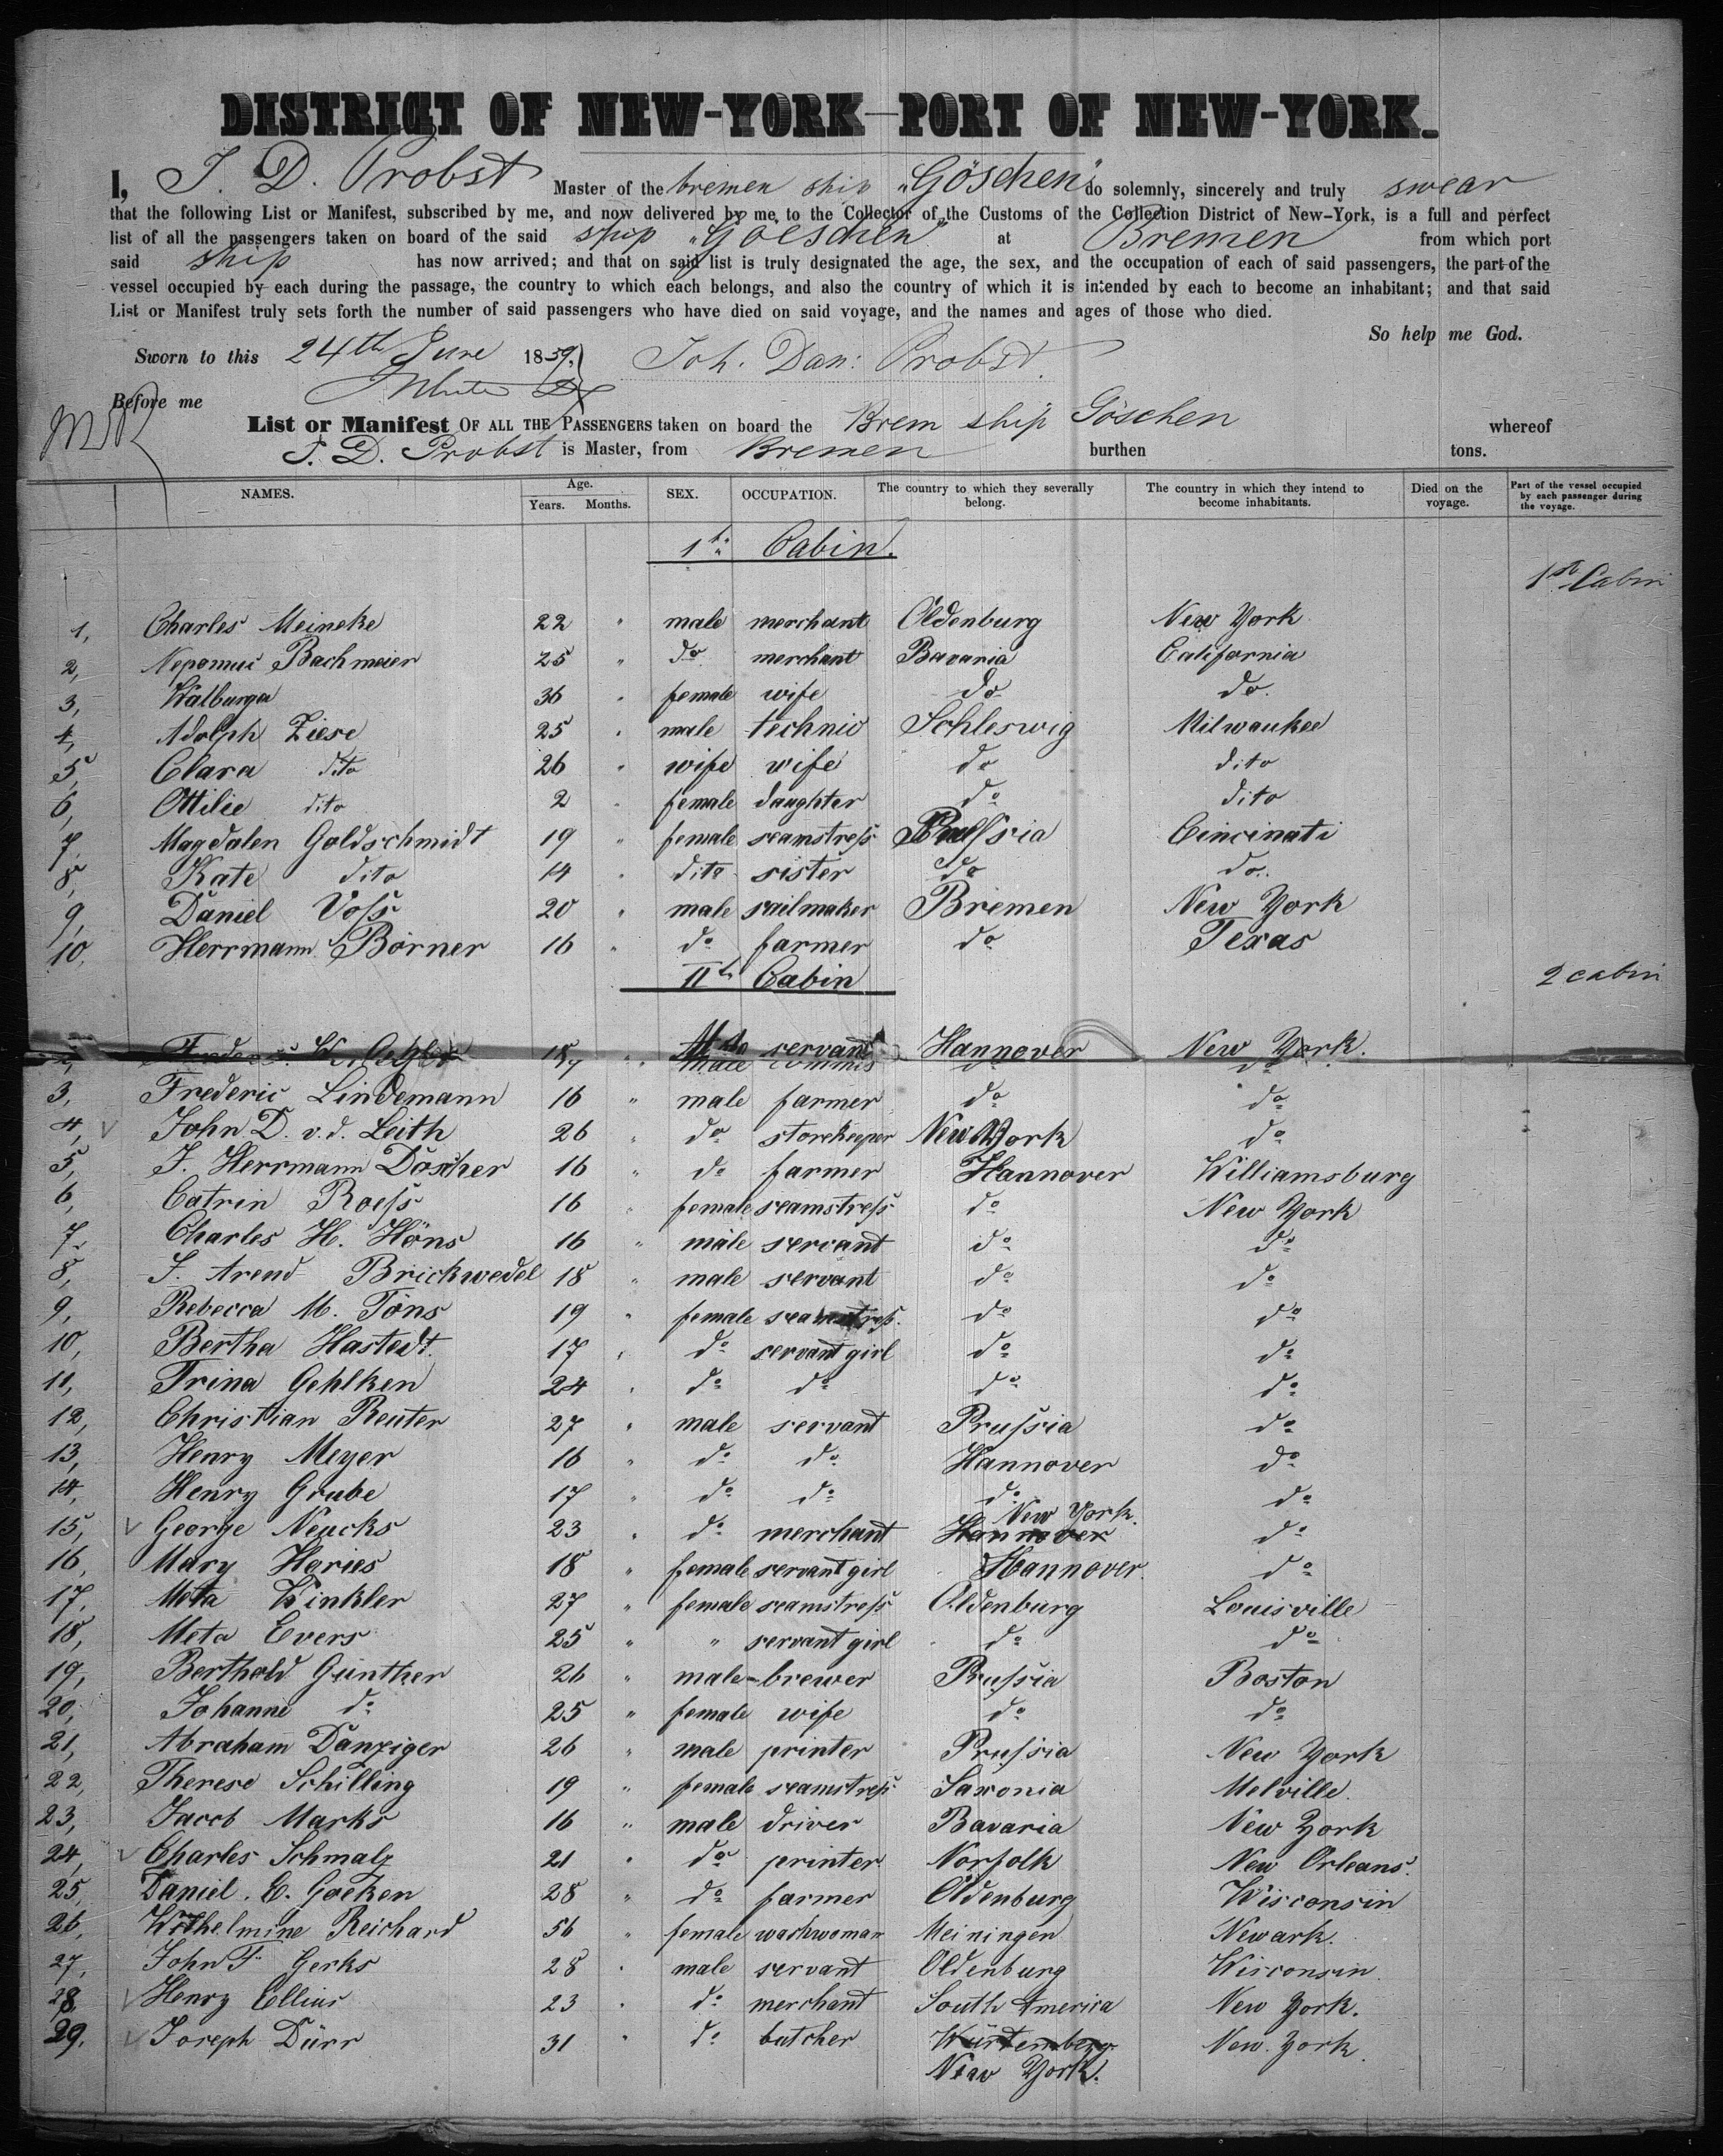 DISTRICT OF NEW-YORK—PORT OF NEW-YORK.
I, J. D. Probst Master of the bremen ship „Göschen" do solemnly, sincerely and truly swear
that the following List or Manifest, subscribed by me, and now delivered by me to the Collector of the Customs of the Collection District of New-York, is a full and perfect
list of all the passengers taken on board of the said ship „Goeschen" at Bremen from which port
said ship has now arrived; and that on said list is truly designated the age, the sex, and the occupation of each of said passengers, the part of the
vessel occupied by each during the passage, the country to which each belongs, and also the country of which it is intended by each to become an inhabitant; and that said
List or Manifest truly sets forth the number of said passengers who have died on said voyage, and the names and ages of those who died.
So help me God.
Sworn to this 24th June 1859. Joh. Dan: Probst.
Before me
List or Manifest OF ALL THE PASSENGERS taken on board the Brem ship Göschen whereof
J. D. Probst is Master, from Bremen burthen tons.
NAMES. Age. Years. Months. SEX. OCCUPATION. The country to which they severally belong. The country in which they intend to become inhabitants. Died on the voyage. Part of the vessel occupied by each passenger during the voyage.
1te Cabin.
1st Cabin
1, Charles Meineke 22 " male merchant Oldenburg New York
2, Nepomuc Bachmeier 25 " do merchant Bavaria California
3, Walburga 36 " female wife do do.
4, Adolph Ziese 25 " male technic Schleswig Milwaukee
5, Clara dito 26 " wife wife do dito
6, Ottilie dito 2 " female daughter do dito
7, Magdalen Goldschmidt 19 " female seamstress Prussia Cincinati
8, Kate dito 14 " dito sister do do.
9, Daniel Voss 20 " male sailmaker Bremen New York
10, Herrmann Börner 16 " do farmer do Texas
IIte Cabin
2 cabin
servant Hannover New York.
2, 18 " male commis do do
3, Frederic Lindemann 16 " male farmer do do
4, John D. v.d. Leith 26 " do storekeeper New York do
5, J. Herrmann Döscher 16 " do farmer Hannover Williamsburg
6, Catrin Roess 16 " female seamstress do New York
7, Charles H. Höns 16 " male servant do do
8, J. Arend Brickwedel 18 " male servant do do
9, Rebecca M. Töns 19 " female seamstress. do do
10, Bertha Hastedt. 17 " do servant girl do do
11, Trina Gehlken 24 " do do do do
12, Christian Reuter 27 " male servant Prussia do
13, Henry Meyer 16 " do do Hannover do
14, Henry Grube 17 " do do do do
15, George Neucks 23 " do merchant Hannover New York. do
16, Mary Hories 18 " female servant girl Hannover. do
17, Meta Winkler 27 " female seamstress Oldenburg Louisville
18, Meta Evers 25 " " servant girl do do
19, Berthold Günther 26 " male brewer Prussia Boston
20, Johanne do 25 " female wife do do
21, Abraham Danziger 26 " male printer Prussia New York
22, Therese Schilling 19 " female seamstress Saxonia Melville.
23, Jacob Marks 16 " male driver Bavaria New York
24, Charles Schmalz 21 " do printer Norfolk New Orleans.
25, Daniel. E. Goeken 28 " do farmer Oldenburg Wisconsin
26, Wilhelmine Reichard 56 " female washwoman Meiningen Newark.
27, John F. Gerks 28 " male servant Oldenburg Wisconsin
28, Henry Cellius 23 " do merchant South America New York.
29. Joseph Dürr 31 " do butcher Würtemberg New York.
New York.